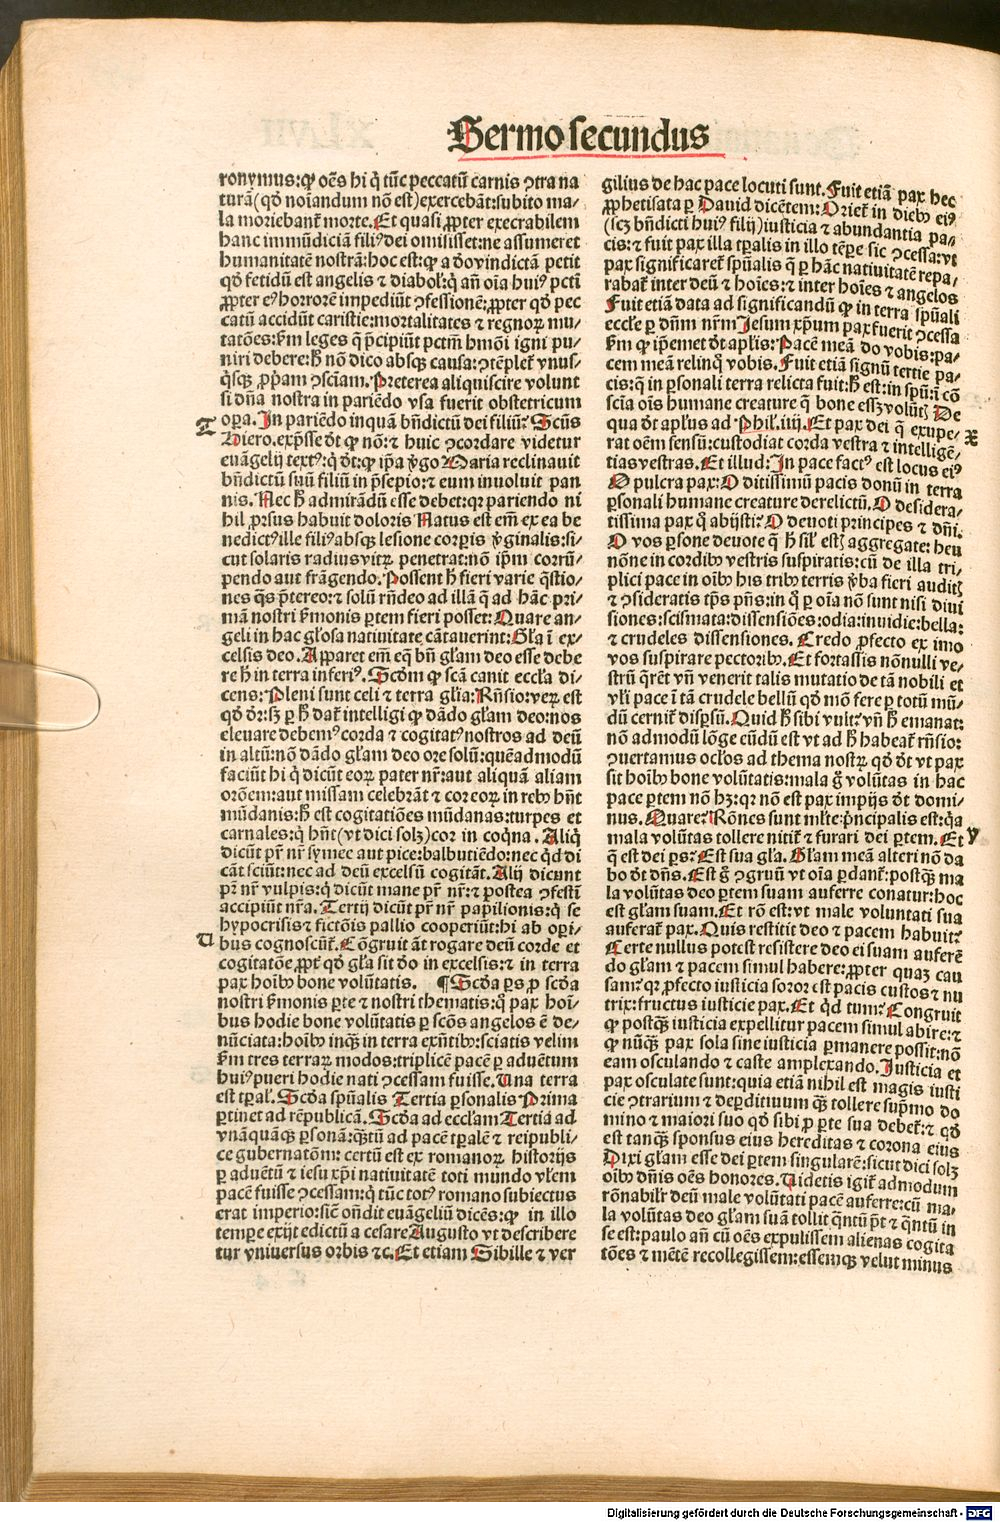 Sermo secundus
ronymus: ꝙ oẽs hi q̃ tũc peccatũ carnis ꝯtra na
turã (qđ noĩandum nõ est) exercebãt: subito ma-
la moriebant᷑ morte. Et quasi ꝓpter execrabilem
hanc immũdiciã filiꝰ dei omisisset: ne assumeret
humanitatẽ nostrã: hoc est: ꝙ a đo vindictã petit
qđ fetidũ est angelis ⁊ diabol᷑: q̃ añ oĩa huiꝰ pctĩ
ꝓpter eꝰ horrorẽ impediũt ꝯfessionẽ: ꝓpter qđ pec
catũ accidũt caristie: mortalitates ⁊ regnoꝝ mu-
tatões: ẜm leges q̃ p̃cipiũt pctm̃ hmõi igni pu-
niri debere: ħ nõ dico absqꝫ causa: ꝯtẽplet᷑ vnus-
q̃sqꝫ ꝓp̃am ꝯsciam. Preterea aliqui scire volunt
si dña nostra in pariẽdo vsa fuerit obstetricum
T
oꝑa. In pariẽdo inquã bñdictũ dei filiũ? Scũs
Hiero. exp̃sse đt ꝙ nõ: ⁊ huic ꝯcordare videtur
euãgelij textꝰ: q̃ đt: ꝙ ip̃a ṽgo Maria reclinauit
bñdictũ suũ filiũ in p̃sepio: ⁊ eum inuoluit pan
nis. Nec ħ admirãdũ esse debet: qꝛ pariendo ni
hil ꝓrsus habuit doloris Natus est em̃ ex ea be
nedictꝰ ille filiꝰ absqꝫ lesione corꝑis ṽginalis: si-
cut solaris radius vitꝝ penetrat: nõ ip̃m corrũ-
pendo aut frãgendo. Possent ħ fieri varie q̃stio-
nes q̃s p̃tereo: ⁊ solũ rñdeo ad illã q̃ ad hãc pri-
mã nostri ẜmonis ꝑtem fieri posset: Quare an-
geli in hac gl̃osa natiuitate cãtauerint: Gl̃a ĩ ex-
celsis deo. Apparet em̃ eq̃ bñ gl̃am deo esse debe
re ħ in terra inferiꝰ. Scđm ꝙ scã canit eccl̃a di-
cens: Pleni sunt celi ⁊ terra gl̃ia: Rñsio: veꝝ est
qđ đr: sꝫ ꝑ ħ dat᷑ intelligi ꝙ dãdo gl̃am deo: nos
eleuare debemꝰ corda ⁊ cogitatꝰ nostros ad deũ
in altũ: nõ dãdo gl̃am deo ore solũ: quẽadmodũ
faciũt hi q̃ dicũt eoꝝ pater nr̃: aut aliquã aliam
orõem: aut missam celebrãt ⁊ cor eoꝝ in rebꝰ hñt
mũdanis: ħ est cogitatiões mũdanas: turpes et
carnales: q̃ hñt (vt dici solꝫ) cor in coq̃na. Aliq̃
dicũt pr̃ nr̃ symee aut pice: balbutiẽdo: nec qͥd di
cãt sciũt: nec ad deũ excelsũ cogitãt. Alij dicunt
pr̃ nr̃ vulpis: q̃ dicũt mane pr̃ nr̃: ⁊ postea ꝯfestĩ
accipiũt nr̃a. Tertij dicũt pr̃ nr̃ papilionis: q̃ se
hypocrisis ⁊ fictõis pallio cooperiũt: hi ab oꝑi-
V
bus cognoscũt᷑. Cõgruit ãt rogare deũ corde et
cogitatõe ꝓpt᷑ qđ gl̃a sit đo in excelsis: ⁊ in terra
pax hoĩbꝰ bone volũtatis. ¶ Scđa ꝑs ꝓ scđa
nostri ẜmonis ꝑte ⁊ nostri thematis: q̃ pax hoĩ-
bus hodie bone volũtatis ꝑ scõs angelos ẽ de-
nũciata: hoĩbꝰ inq̃ꝫ in terra exñtibꝰ: sciatis velim
ẜm tres terraꝝ modos: triplicẽ pacẽ ꝑ aduẽtum
huiꝰ pueri hodie nati ꝯcessam fuisse. Una terra
est tꝑal᷑. Scđa spũalis Tertia ꝑsonalis Prima
ꝑtinet ad rẽpublicã. Scđa ad eccl̃am Tertiã ad
vnãquãqꝫ ꝑsonã: q̃ꝫtũ ad pacẽ tꝑalẽ ⁊ reipubli-
ce gubernatõm: certũ est ex romanoꝝ historijs
ꝑ aduẽtũ ⁊ iesu xp̃i natiuitatẽ toti mundo vl̃em
pacẽ fuisse ꝯcessam: q̃ tũc totꝰ romano subiectus
erat imperio: sic̃ oñdit euãgeliũ dicẽs: ꝙ in illo
temꝑe exijt edictũ a cesare Augusto vt describere
tur vniuersus orbis ⁊c. Et etiam Sibille ⁊ ver
gilius de hac pace locuti sunt. Fuit etiã pax hec
ꝓphetisata ꝑ Dauid dicẽtem: Oriet᷑ in diebꝰ eiꝰ
(scꝫ bñdicti huiꝰ filij) iusticia ⁊ abundantia pa-
cis: ⁊ fuit pax illa tꝑalis in illo tẽꝑe sic ꝯcessa: vt
pax significaret᷑ spũalis q̃ ꝑ hãc natiuitatẽ repa-
rabat᷑ inter deũ ⁊ hoĩes: ⁊ inter hoĩes ⁊ angelos
Fuit etiã data ad significandũ ꝙ in terra spũali
eccl̃e ꝑ dñm nr̃m Jesum xp̃um pax fuerit ꝯcessa
ẜm ꝙ ip̃emet đt apl̃is: Pacẽ meã do vobis: pa-
cem meã relinq̃ vobis. Fuit etiã signũ tertie pa-
cis: q̃ in ꝑsonali terra relicta fuit: ħ est: in spũ: ĩ cõ
scĩa oĩs humane creature q̃ bone essꝫ volũt᷑ De
X
qua đt apl̃us ad Phil᷑. iiij. Et pax dei q̃ exupe-
rat oẽm sensũ: custodiat corda vestra ⁊ intelligẽ-
tias vestras. Et illud: In pace factꝰ est locus eiꝰ
O pulcra pax: O ditissimũ pacis donũ in terra
ꝑsonali humane creature derelictũ. O desidera-
tissima pax q̃ abijsti? O deuoti principes ⁊ dñi.
O vos ꝑsone deuote q̃ ħ sil᷑ estꝫ aggregate: heu
nõne in cordibꝰ vestris suspiratis: cũ de illa tri-
plici pace in oĩbꝰ his tribꝰ terris ṽba fieri auditꝫ
⁊ ꝯsideratis tp̃s pñs: in q̃ ꝑ oĩa nõ sunt nisi diui
siones: scismata: dissensiões: odia: inuidie: bella:
⁊ crudeles dissensiones. Credo ꝓfecto ex imo
vos suspirare pectoribꝰ. Et fortassis nõnulli ve-
strũ q̃rẽt vñ venerit talis mutatio de tã nobili et
vl̃i pace ĩ tã crudele bellũ qđ mõ fere ꝑ totũ mũ-
dũ cernit᷑ disꝑsũ. Quid ħ sibi vult? vñ ħ emanat:
nõ admodũ lõge eũdũ est vt ad ħ habeat᷑ rñsio:
ꝯuertamus ocl̃os ad thema nostꝝ qđ đt vt pax
sit hoĩbꝰ bone volũtatis: mala g̃ volũtas in hac
pace ꝑtem nõ hꝫ: qꝛ nõ est pax impijs đt domi-
nus. Quare? Rõnes sunt ml̃te: p̃ncipalis est: q̃a
Y
mala volũtas tollere nitit᷑ ⁊ furari dei ꝑtem. Et
q̃ est dei ꝑs? Est sua gl̃a. Gl̃am meã alteri nõ da
bo đt dñs. Est g̃ ꝯgruũ vt oĩa ꝑdant᷑: postq̃ꝫ ma
la volũtas deo ꝑtem suam auferre conatur: hoc
est gl̃am suam. Et rõ est: vt male voluntati sua
auferat᷑ pax. Quis restitit deo ⁊ pacem habuit?
Certe nullus potest resistere deo ei suam auferẽ
do gl̃am ⁊ pacem simul habere: ꝓpter quaꝫ cau
sam? qꝛ ꝓfecto iusticia soror est pacis custos ⁊ nu
trix: fructus iusticie pax. Et qͥd tum? Congruit
ꝙ postq̃ꝫ iusticia expellitur pacem simul abire: ⁊
ꝙ nũq̃ꝫ pax sola sine iusticia ꝑmanere possit: nõ
eam osculando ⁊ caste amplexando. Justicia et
pax osculate sunt: quia etiã nihil est magis iusti
cie ꝯtrarium ⁊ deꝑditiuum q̃ꝫ tollere sup̃mo do
mino ⁊ maiori suo qđ sibi ꝓ ꝑte sua debet᷑: ⁊ qđ
est tanq̃ꝫ sponsus eius hereditas ⁊ corona eius
Dixi gl̃am esse dei ꝑtem singularẽ: sicut dici solꝫ
oĩbꝰ dñis oẽs honores. Uidetis igit᷑ ad modum
rõnabil᷑r deũ male volũtati pacẽ auferre: cũ ma-
la volũtas deo gl̃am suã tollit q̃ntũ p̃t ⁊ q̃ntũ in
se est: paulo añ cũ oẽs expulissem alienas cogita
tões ⁊ mẽtẽ recollegissem: essemqꝫ velut minus
Digitalisierung gefördert durch die Deutsche Forschungsgemeinschaft - DFG